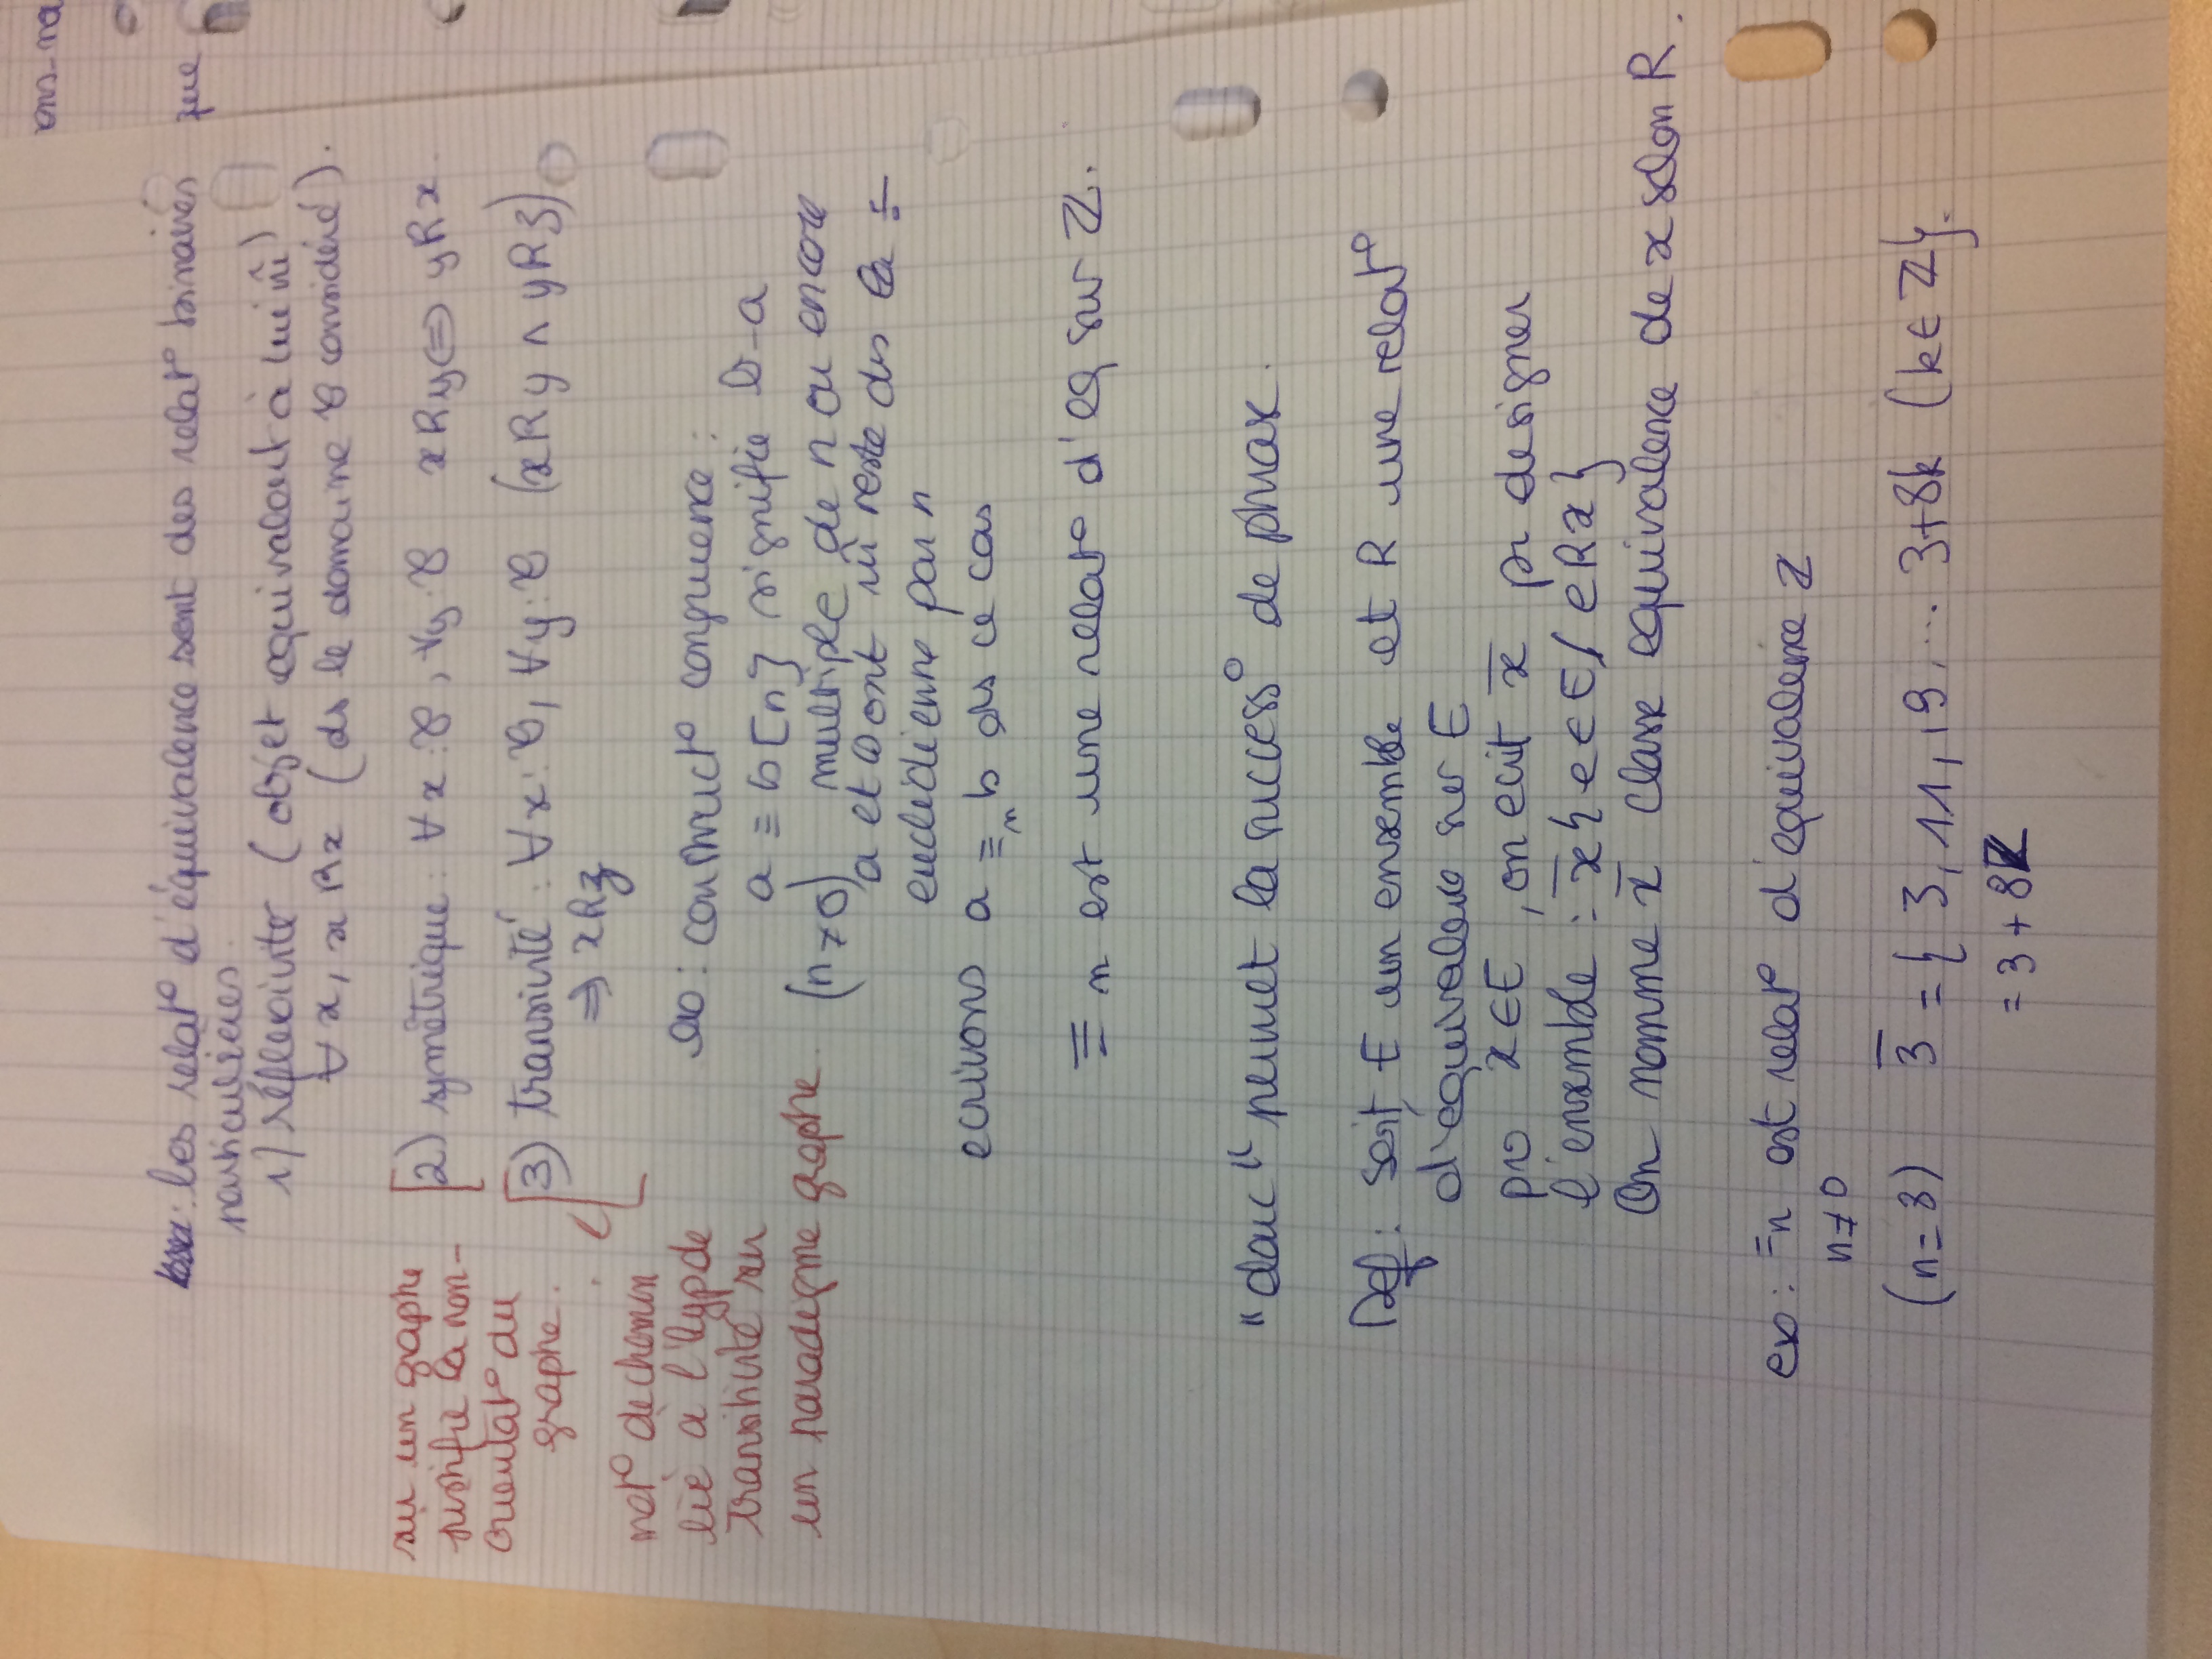 ons-no
que
: Les relat° d'équivalence sont des relat° binaires
particulières.
1) réflexivité (objet equivalent à lui m̂)
∀x, xRx (ds le domaine 𝒞 considéré).
[2) symétrique : ∀x:𝒞, ∀y:𝒞 xRy ⇔ yRx.
[3) transivité : ∀x:𝒞, ∀y:𝒞 (xRy ∧ yRz)
⇒ xRz
su un graphe
justifie la non-
orientat° du
graphe.
not° de chemin
lié à l'hyp de
transitivité su
un paradigme graphe.
ex : construct° congruence :
a ≡ b[n] signifie b-a
(n≠0) multiple de n ou encore
a et b ont m̂ reste ds la ÷
euclidienne par n
ecrivons a ≡n b ds ce cas
≡n est une relat° d'eq sur ℤ.
"donc" permet la success° de phrase.
Def : soit E un ensemble et R une relat°
d'équivalence sur E
pr x∈E, on ecrit x̄ pr designer
l'ensemble : x̄ {e∈E/ eRx}
On nomme x̄ classe equivalence de x selon R.
ex : =n est relat° d'equivalence ℤ
n≠0
(n=8) 3̄ = { 3, 11, 19, ... 3+8k (k∈ℤ}.
= 3 + 8ℤ